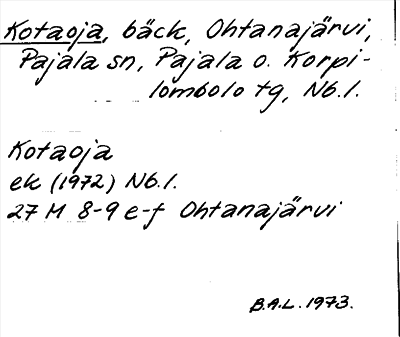 Kotaoja, bäck, Ohtanajärvi,
Pajala sn, Pajala o. Korpi-
lombolo tg, Nb. l.
Kotaoja
ek (1972) Nb. l.
27 M 8-9 e-f Ohtanajärvi
B.A.L. 1973.